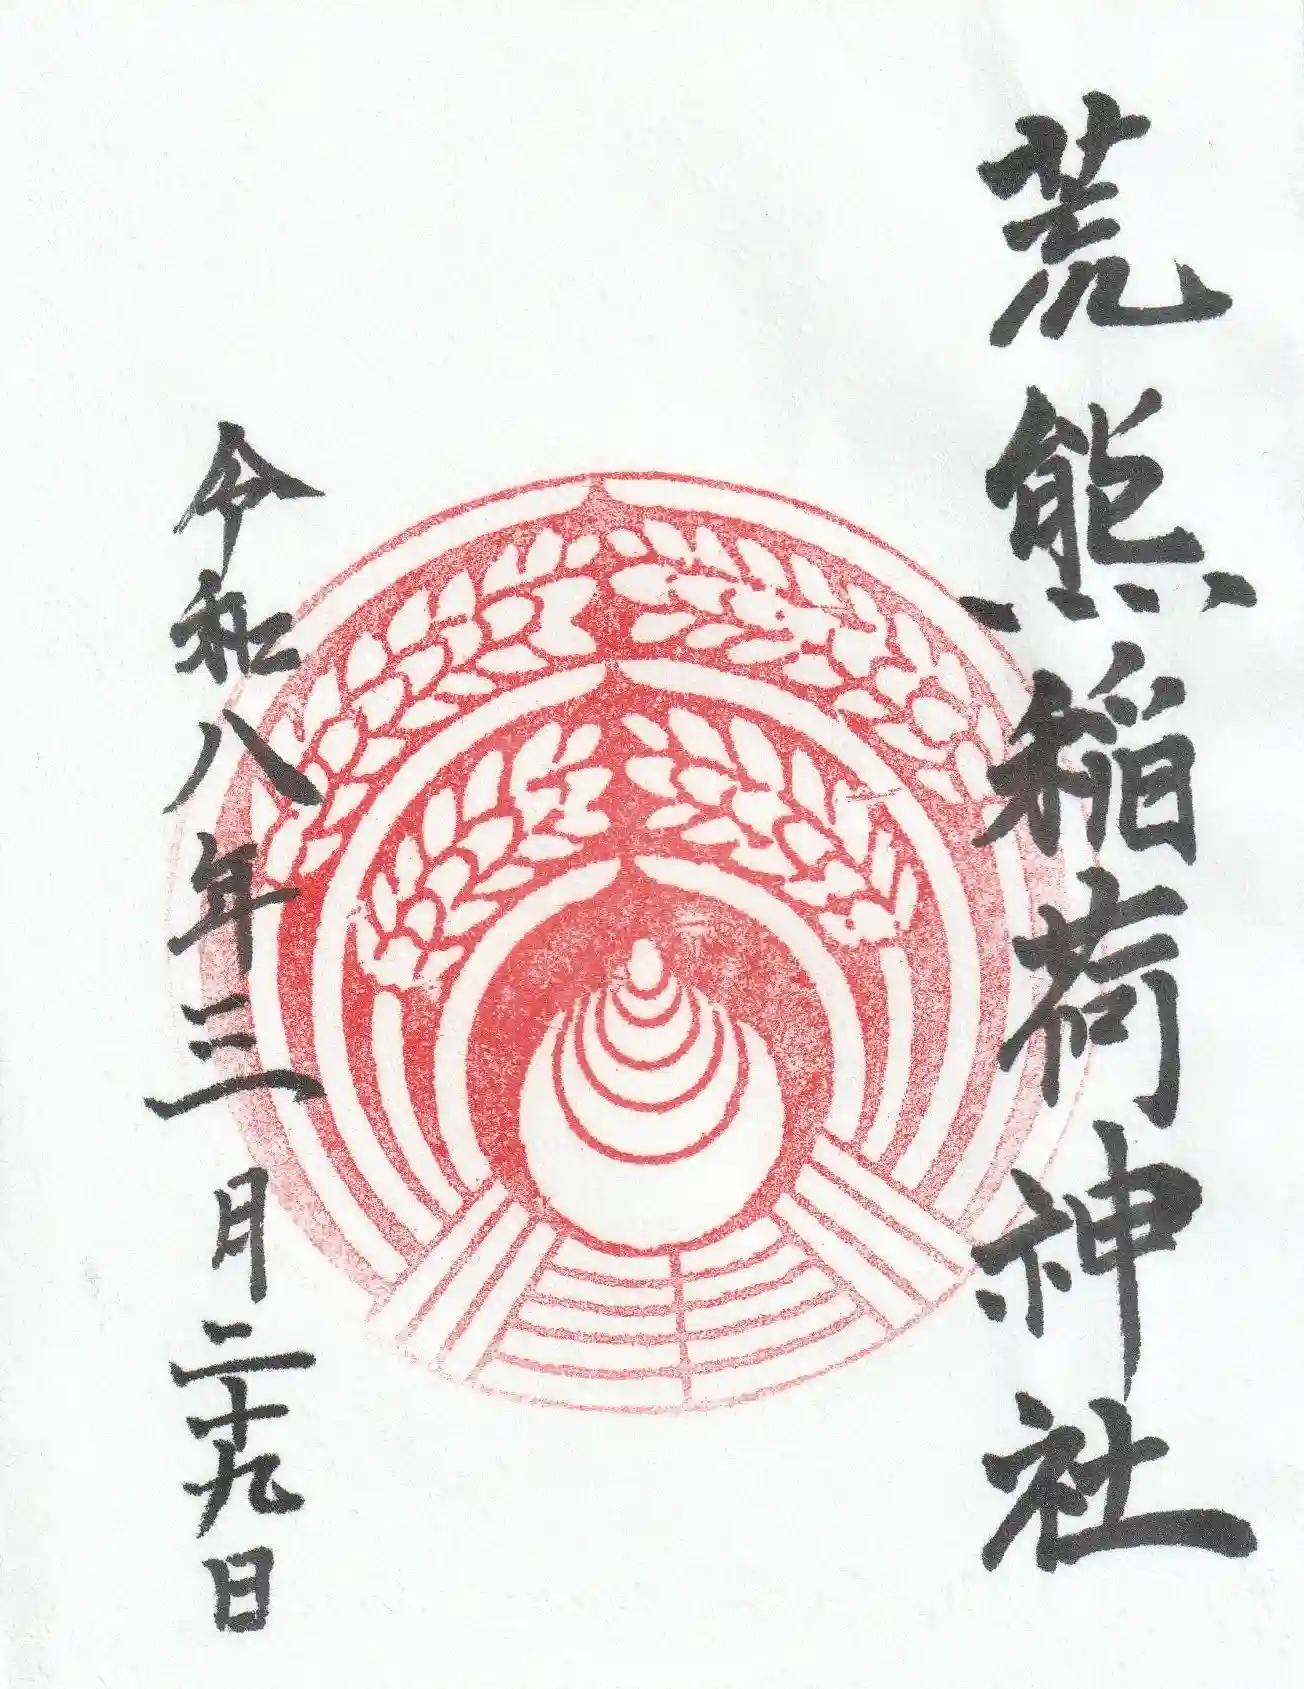 荒熊稲荷神社
令和八年三月二十九日